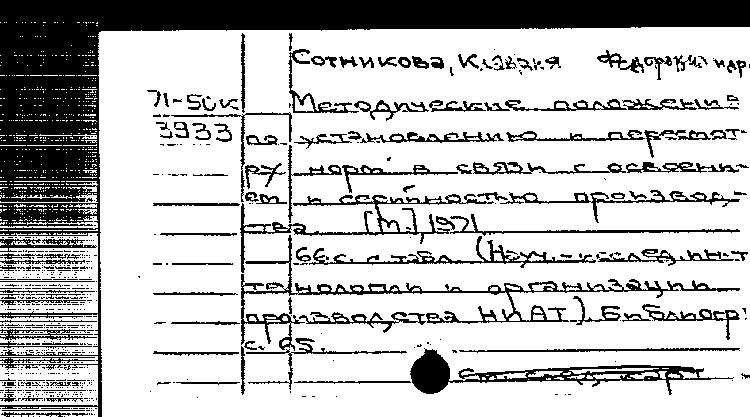 Сотникова, Клавдия Федоровна
71-50к Методические положения
3933 по установлению и пересмот-
ру норм в связи с освоени-
ем и серийностью производ-
ства. [М.], 1971
66 с. с табл. (Науч.-исслед. ин-т
технологии и организации
производства НИАТ). Библиогр.:
с. 65.
См. след. карт